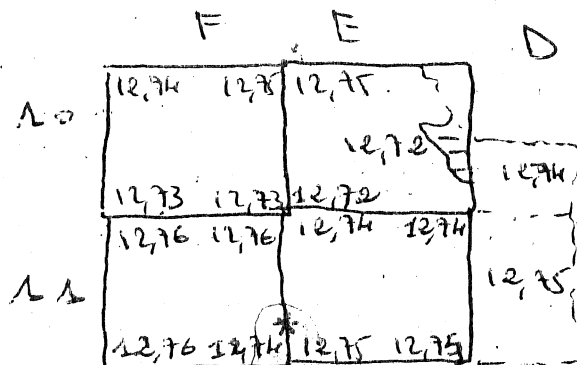 F E D
12,74 12,75 12,75
10
12,72
12,74
12,73 12,73 12,72
12,76 12,76 12,74 12,74
12,75
11
12,76 12,74 12,75 12,75